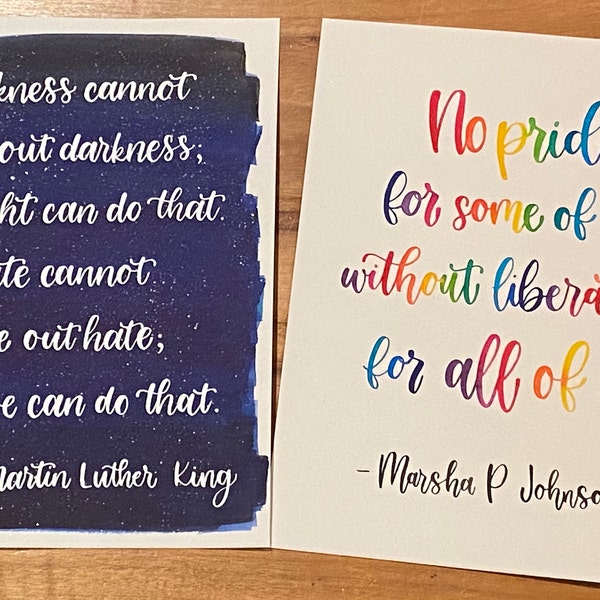 kness cannot
out darkness;
ht can do that.
te cannot
e out hate;
e can do that.
Martin Luther King
No prid
for some of
without libera
for all of
- Marsha P Johnso